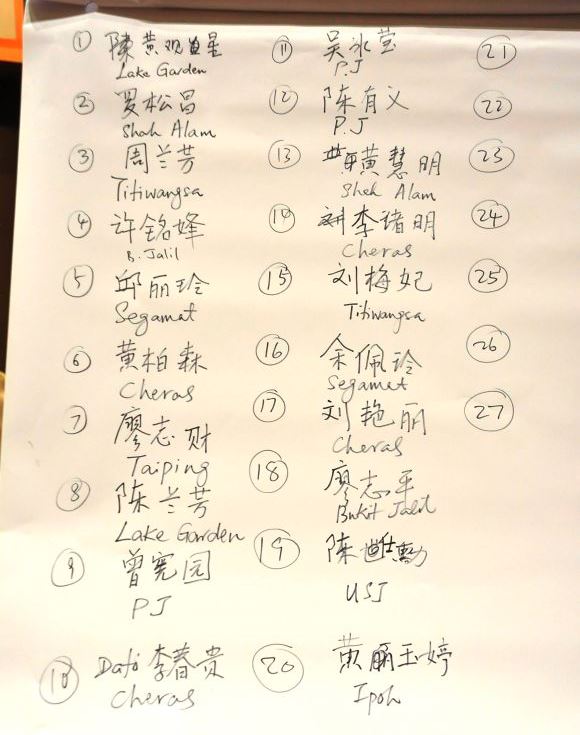 ① 陳黄观星
Lake Garden
② 罗松昌
Shah Alam
③ 周兰芳
Titiwangsa
④ 许铭峰
B. Jalil
⑤ 邱丽玲
Segamat
⑥ 黄柏森
Cheras
⑦ 廖志财
Taiping
⑧ 陈兰芳
Lake Garden
⑨ 曾宪园
PJ
⑩ Dato 李春贵
Cheras
⑪ 吴冰莹
P.J
⑫ 陈有义
P.J
⑬ 黄慧明
Shah Alam
⑭ 李绪明
Cheras
⑮ 刘梅妃
Titiwangsa
⑯ 余佩玲
Segamat
⑰ 刘艳丽
Cheras
⑱ 廖志平
Bukit Jalil
⑲ 陈 勳
USJ
⑳ 黄 玉婷
Ipoh
21
22
23
24
25
26
27